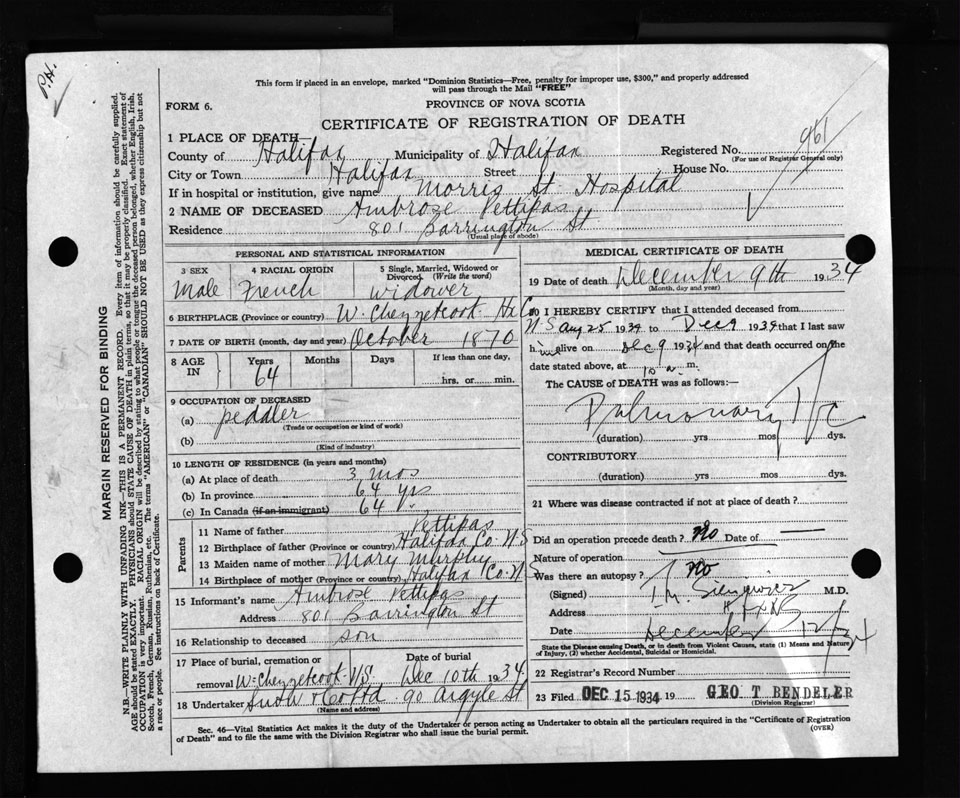 P.H.
This form if placed in an envelope, marked "Dominion Statistics—Free, penalty for improper use, $300," and properly addressed
will pass through the Mail "FREE"
FORM 6.
PROVINCE OF NOVA SCOTIA
CERTIFICATE OF REGISTRATION OF DEATH
961
1 PLACE OF DEATH—
County of Halifax Municipality of Halifax Registered No.
(For use of Registrar General only)
City or Town Halifax Street House No.
If in hospital or institution, give name Morris St Hospital
2 NAME OF DECEASED Ambrose Pettipas
Residence 801 Barrington St
(Usual place of abode)
PERSONAL AND STATISTICAL INFORMATION
3 SEX 4 RACIAL ORIGIN 5 Single, Married, Widowed or Divorced (Write the word)
Male French widower
6 BIRTHPLACE (Province or country) W. Chezzetcook Hx Co NS
7 DATE OF BIRTH (month, day and year) October 1870
8 AGE IN Years Months Days If less than one day,
64 hrs. or min.
9 OCCUPATION OF DECEASED
(a) peddler
(Trade or occupation or kind of work)
(b)
(Kind of industry)
10 LENGTH OF RESIDENCE (in years and months)
(a) At place of death 3 mos
(b) In province 64 yrs
(c) In Canada (if an immigrant) 64
Parents
11 Name of father Pettipas
12 Birthplace of father (Province or country) Halifax Co. N S
13 Maiden name of mother Mary Murphy
14 Birthplace of mother (Province or country) Halifax Co. N S
15 Informant's name Ambrose Pettipas
Address 801 Barrington St
16 Relationship to deceased son
17 Place of burial, cremation or Date of burial
removal W. Chezzetcook N S Dec 10th 1934
18 Undertaker Snow & Co Ltd 90 Argyle St
(Name and address)
MEDICAL CERTIFICATE OF DEATH
19 Date of death December 9th 1934
(Month, day and year)
20 I HEREBY CERTIFY that I attended deceased from
Aug 25 1934 to Dec 9 1934 that I last saw
him alive on Dec 9 1934 and that death occurred on the
date stated above, at 10 a. m.
The CAUSE of DEATH was as follows:—
Pulmonary Tbc
(duration) yrs mos dys.
CONTRIBUTORY
(duration) yrs mos dys.
21 Where was disease contracted if not at place of death?
Did an operation precede death? No Date of —
Nature of operation
Was there an autopsy? no
(Signed) M.D.
Address Hfx
Date December 12/34
State the Disease causing Death, or in death from Violent Causes, state (1) Means and Nature
of Injury, (2) whether Accidental, Suicidal or Homicidal.
22 Registrar's Record Number
23 Filed DEC 15 1934 19 GEO. T BENDELER
(Division Registrar)
Sec. 46—Vital Statistics Act makes it the duty of the Undertaker or person acting as Undertaker to obtain all the particulars required in the "Certificate of Registration
of Death" and to file the same with the Division Registrar who shall issue the burial permit.
(OVER)
MARGIN RESERVED FOR BINDING
N.B.—WRITE PLAINLY WITH UNFADING INK—THIS IS A PERMANENT RECORD. Every item of information should be carefully supplied.
AGE should be stated EXACTLY. PHYSICIANS should STATE CAUSE OF DEATH in plain terms, so that it may be properly classified. Exact statement of
OCCUPATION is very important. RACIAL ORIGIN will be described by stating to what people or tongue the deceased person belonged, whether English, Irish,
Scotch, French, German, Russian, Ruthenian, etc. The terms "AMERICAN" or "CANADIAN" SHOULD NOT BE USED as they express citizenship but not
a race or people. See instructions on back of Certificate.